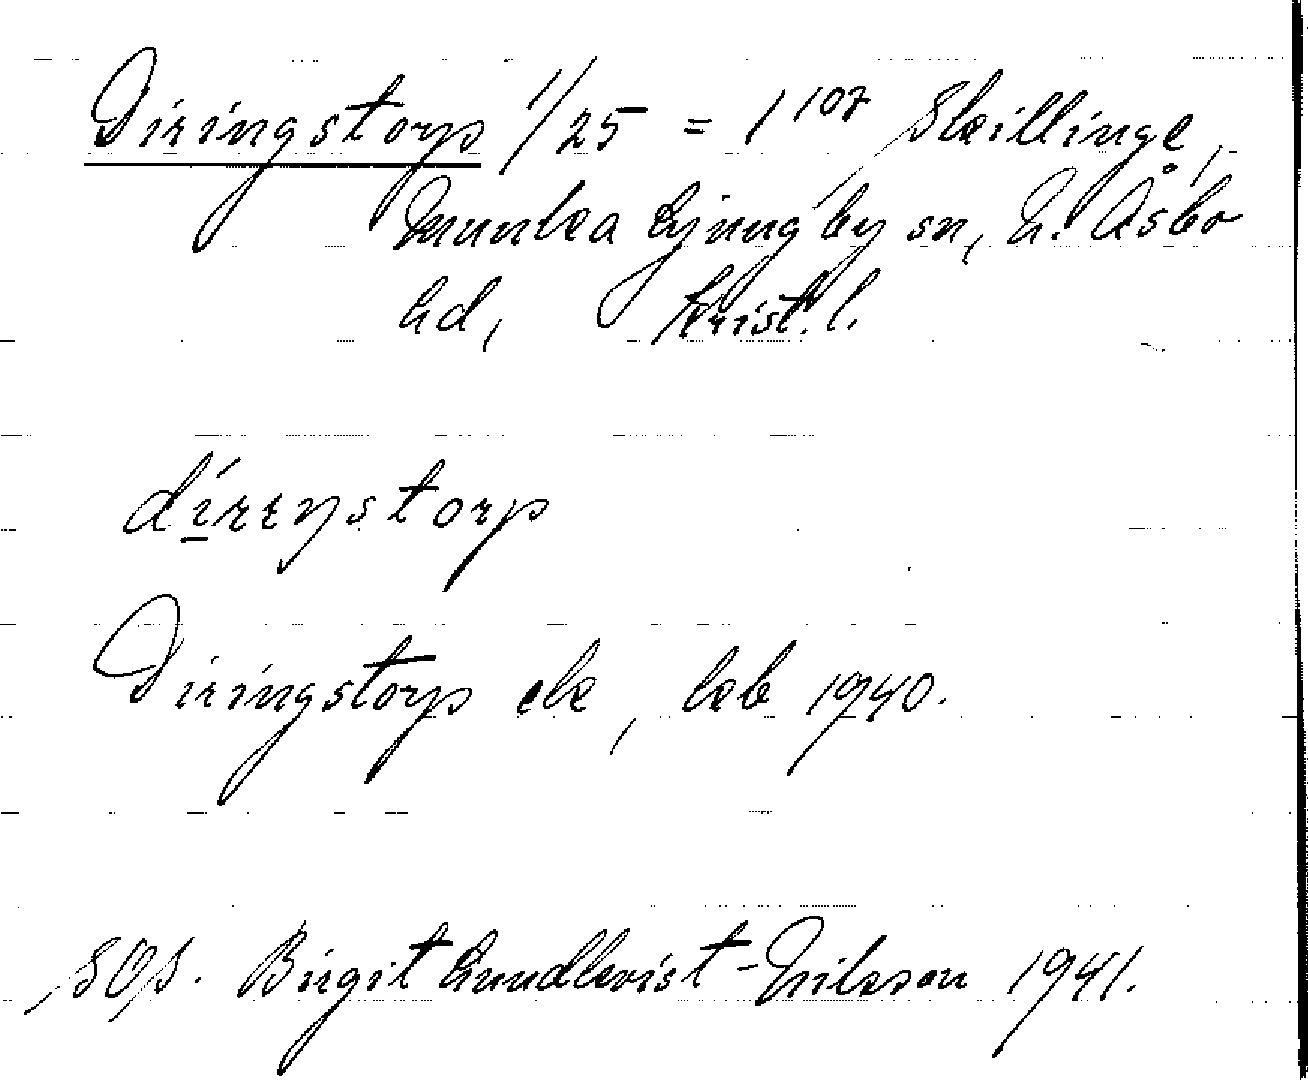 Diringstorp 1/25 = 1¹⁰⁷ Skillinge,
Munka Ljungby sn, N. Åsbo
hd, Krist. l.
dírıŋstorp
Diringstorp ek, kb 1940.
SOS. Birgit Lundkvist-Nilsson 1941.